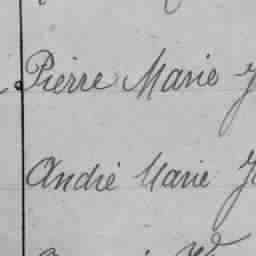 Pierre Marie
André Marie